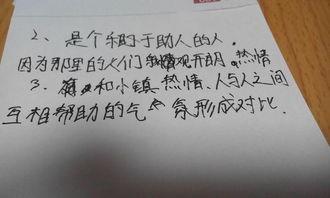 2、是个乐于助人的人.
因为那里的人们 观开明.热情
3. 和小镇热情、人与人之间
互相帮助的气 氛形成对比.